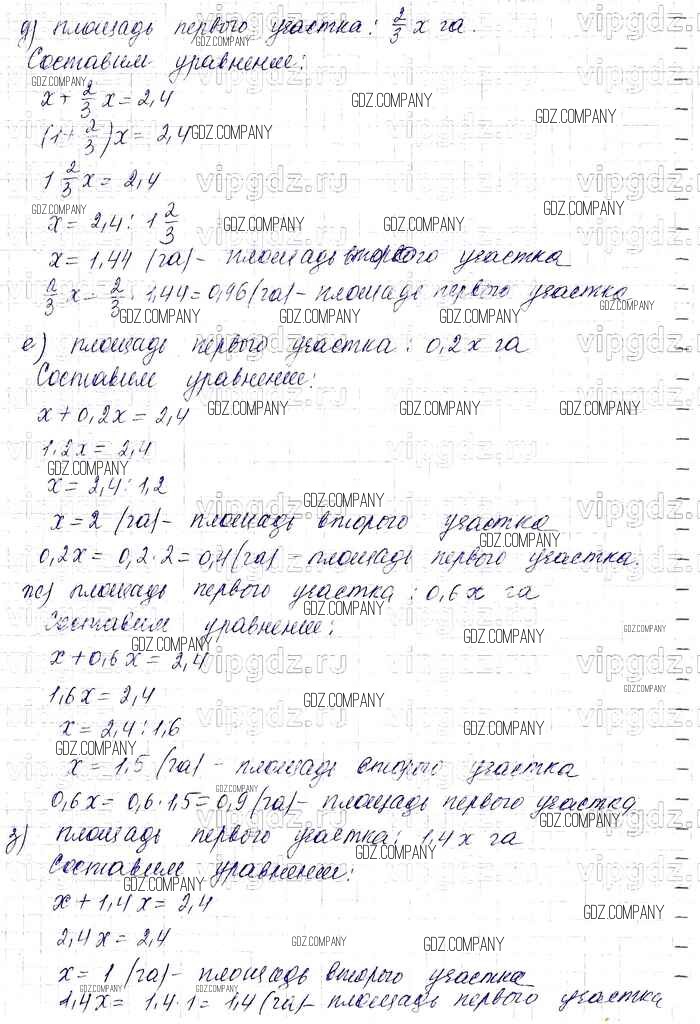 д) площадь первого участка: 2/3 x га.
Составим уравнение:
x + 2/3 x = 2,4
(1 + 2/3)x = 2,4
1 2/3 x = 2,4
x = 2,4 : 1 2/3
x = 1,44 (га) - площадь второго участка
2/3 x = 2/3 · 1,44 = 0,96 (га) - площадь первого участка
е) площадь первого участка: 0,2x га
Составим уравнение:
x + 0,2x = 2,4
1,2x = 2,4
x = 2,4 : 1,2
x = 2 (га) - площадь второго участка
0,2x = 0,2 · 2 = 0,4 (га) - площадь первого участка.
ж) площадь первого участка: 0,6x га
Составим уравнение:
x + 0,6x = 2,4
1,6x = 2,4
x = 2,4 : 1,6
x = 1,5 (га) - площадь второго участка
0,6x = 0,6 · 1,5 = 0,9 (га) - площадь первого участка
з) площадь первого участка: 1,4x га
Составим уравнение:
x + 1,4x = 2,4
2,4x = 2,4
x = 1 (га) - площадь второго участка
1,4x = 1,4 · 1 = 1,4 (га) - площадь первого участка
GDZ.COMPANY
vipgdz.ru